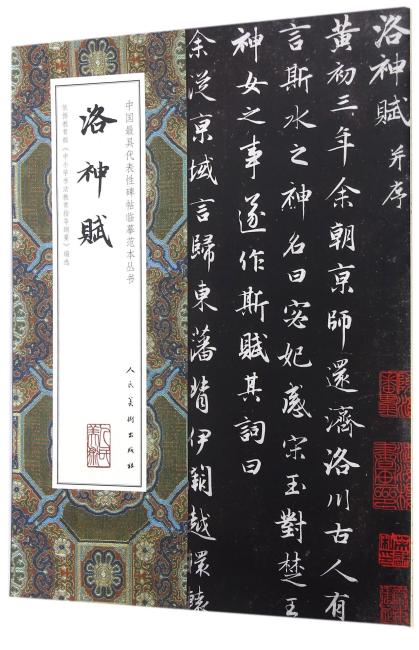 洛神賦 并序
黃初三年余朝京師還濟洛川古人有
言斯水之神名曰宓妃感宋玉對楚王
神女之事遂作斯賦其詞曰
余從京域言歸東藩背伊闕越轘轅
中国最具代表性碑帖临摹范本丛书
洛神賦
依据教育部《中小学书法教育指导纲要》编选
人民美術出版社